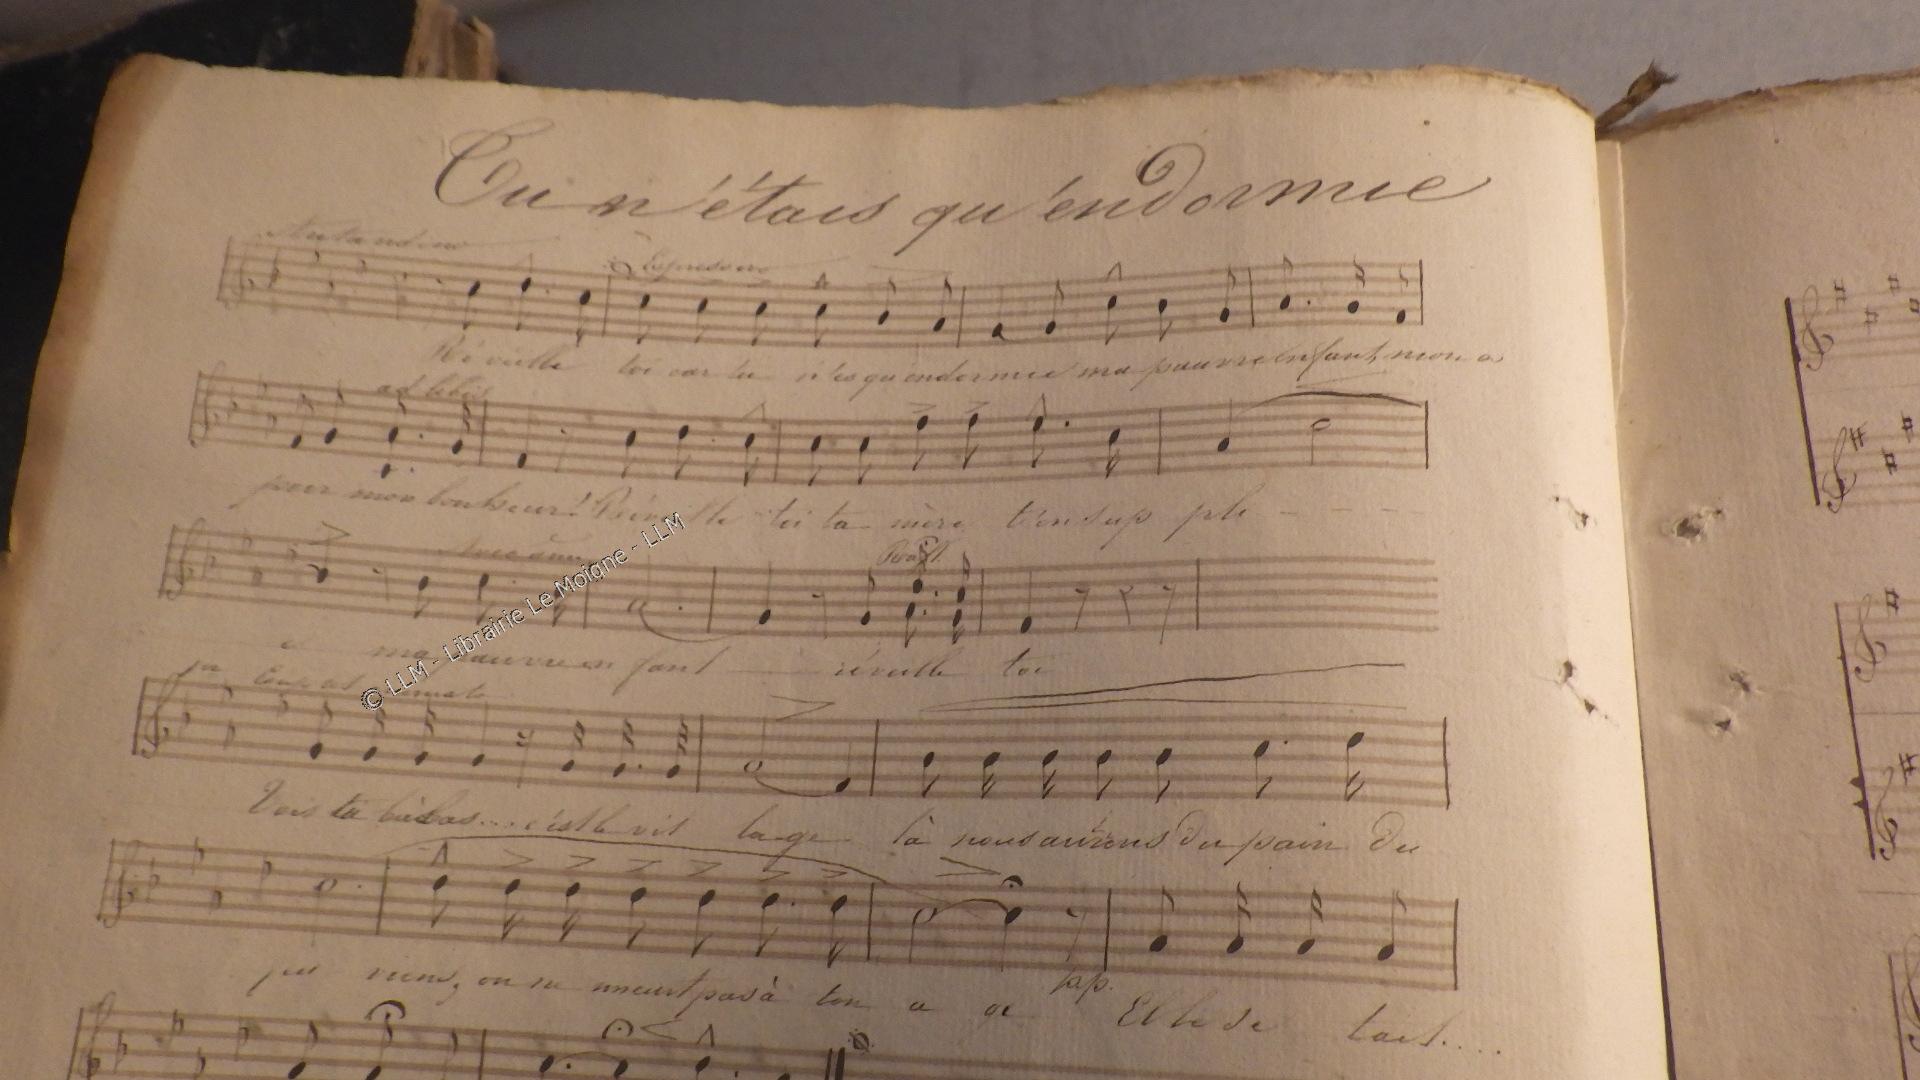 Tu n'étais qu'endormie
Andantino
Espressivo
Réveille toi car tu n'es qu'endormie ma pauvre enfant, mon a
ad libit
pour mon bonheur! Réveille toi ta mère t'en sup pli - - - -
é ma pauvre en fant - - réveille toi
Vois tu là bas... c'est le vil la ge là nous aurons du pain du
viens, on ne meurt pas à ton a ge pp. Elle se tait....
© LLM - Librairie Le Moigne - LLM